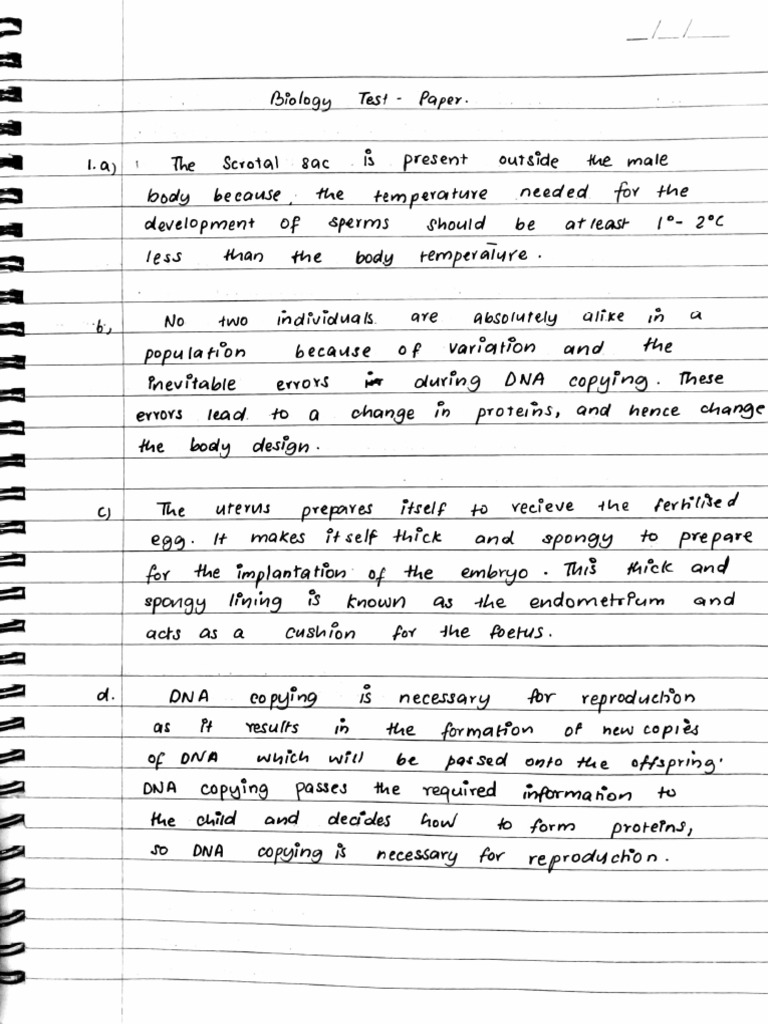 _/_/_
Biology Test - Paper.
1. a) The Scrotal sac is present outside the male
body because, the temperature needed for the
development of sperms should be atleast 1° - 2°C
less than the body temperature.
b, No two individuals are absolutely alike in a
population because of variation and the
inevitable errors during DNA copying. These
errors lead to a change in proteins, and hence change
the body design.
c) The uterus prepares itself to recieve the fertilised
egg. It makes itself thick and spongy to prepare
for the implantation of the embryo. This thick and
spongy lining is known as the endometrium and
acts as a cushion for the foetus.
d. DNA copying is necessary for reproduction
as it results in the formation of new copies
of DNA which will be passed onto the offspring.
DNA copying passes the required information to
the child and decides how to form proteins,
so DNA copying is necessary for reproduction.